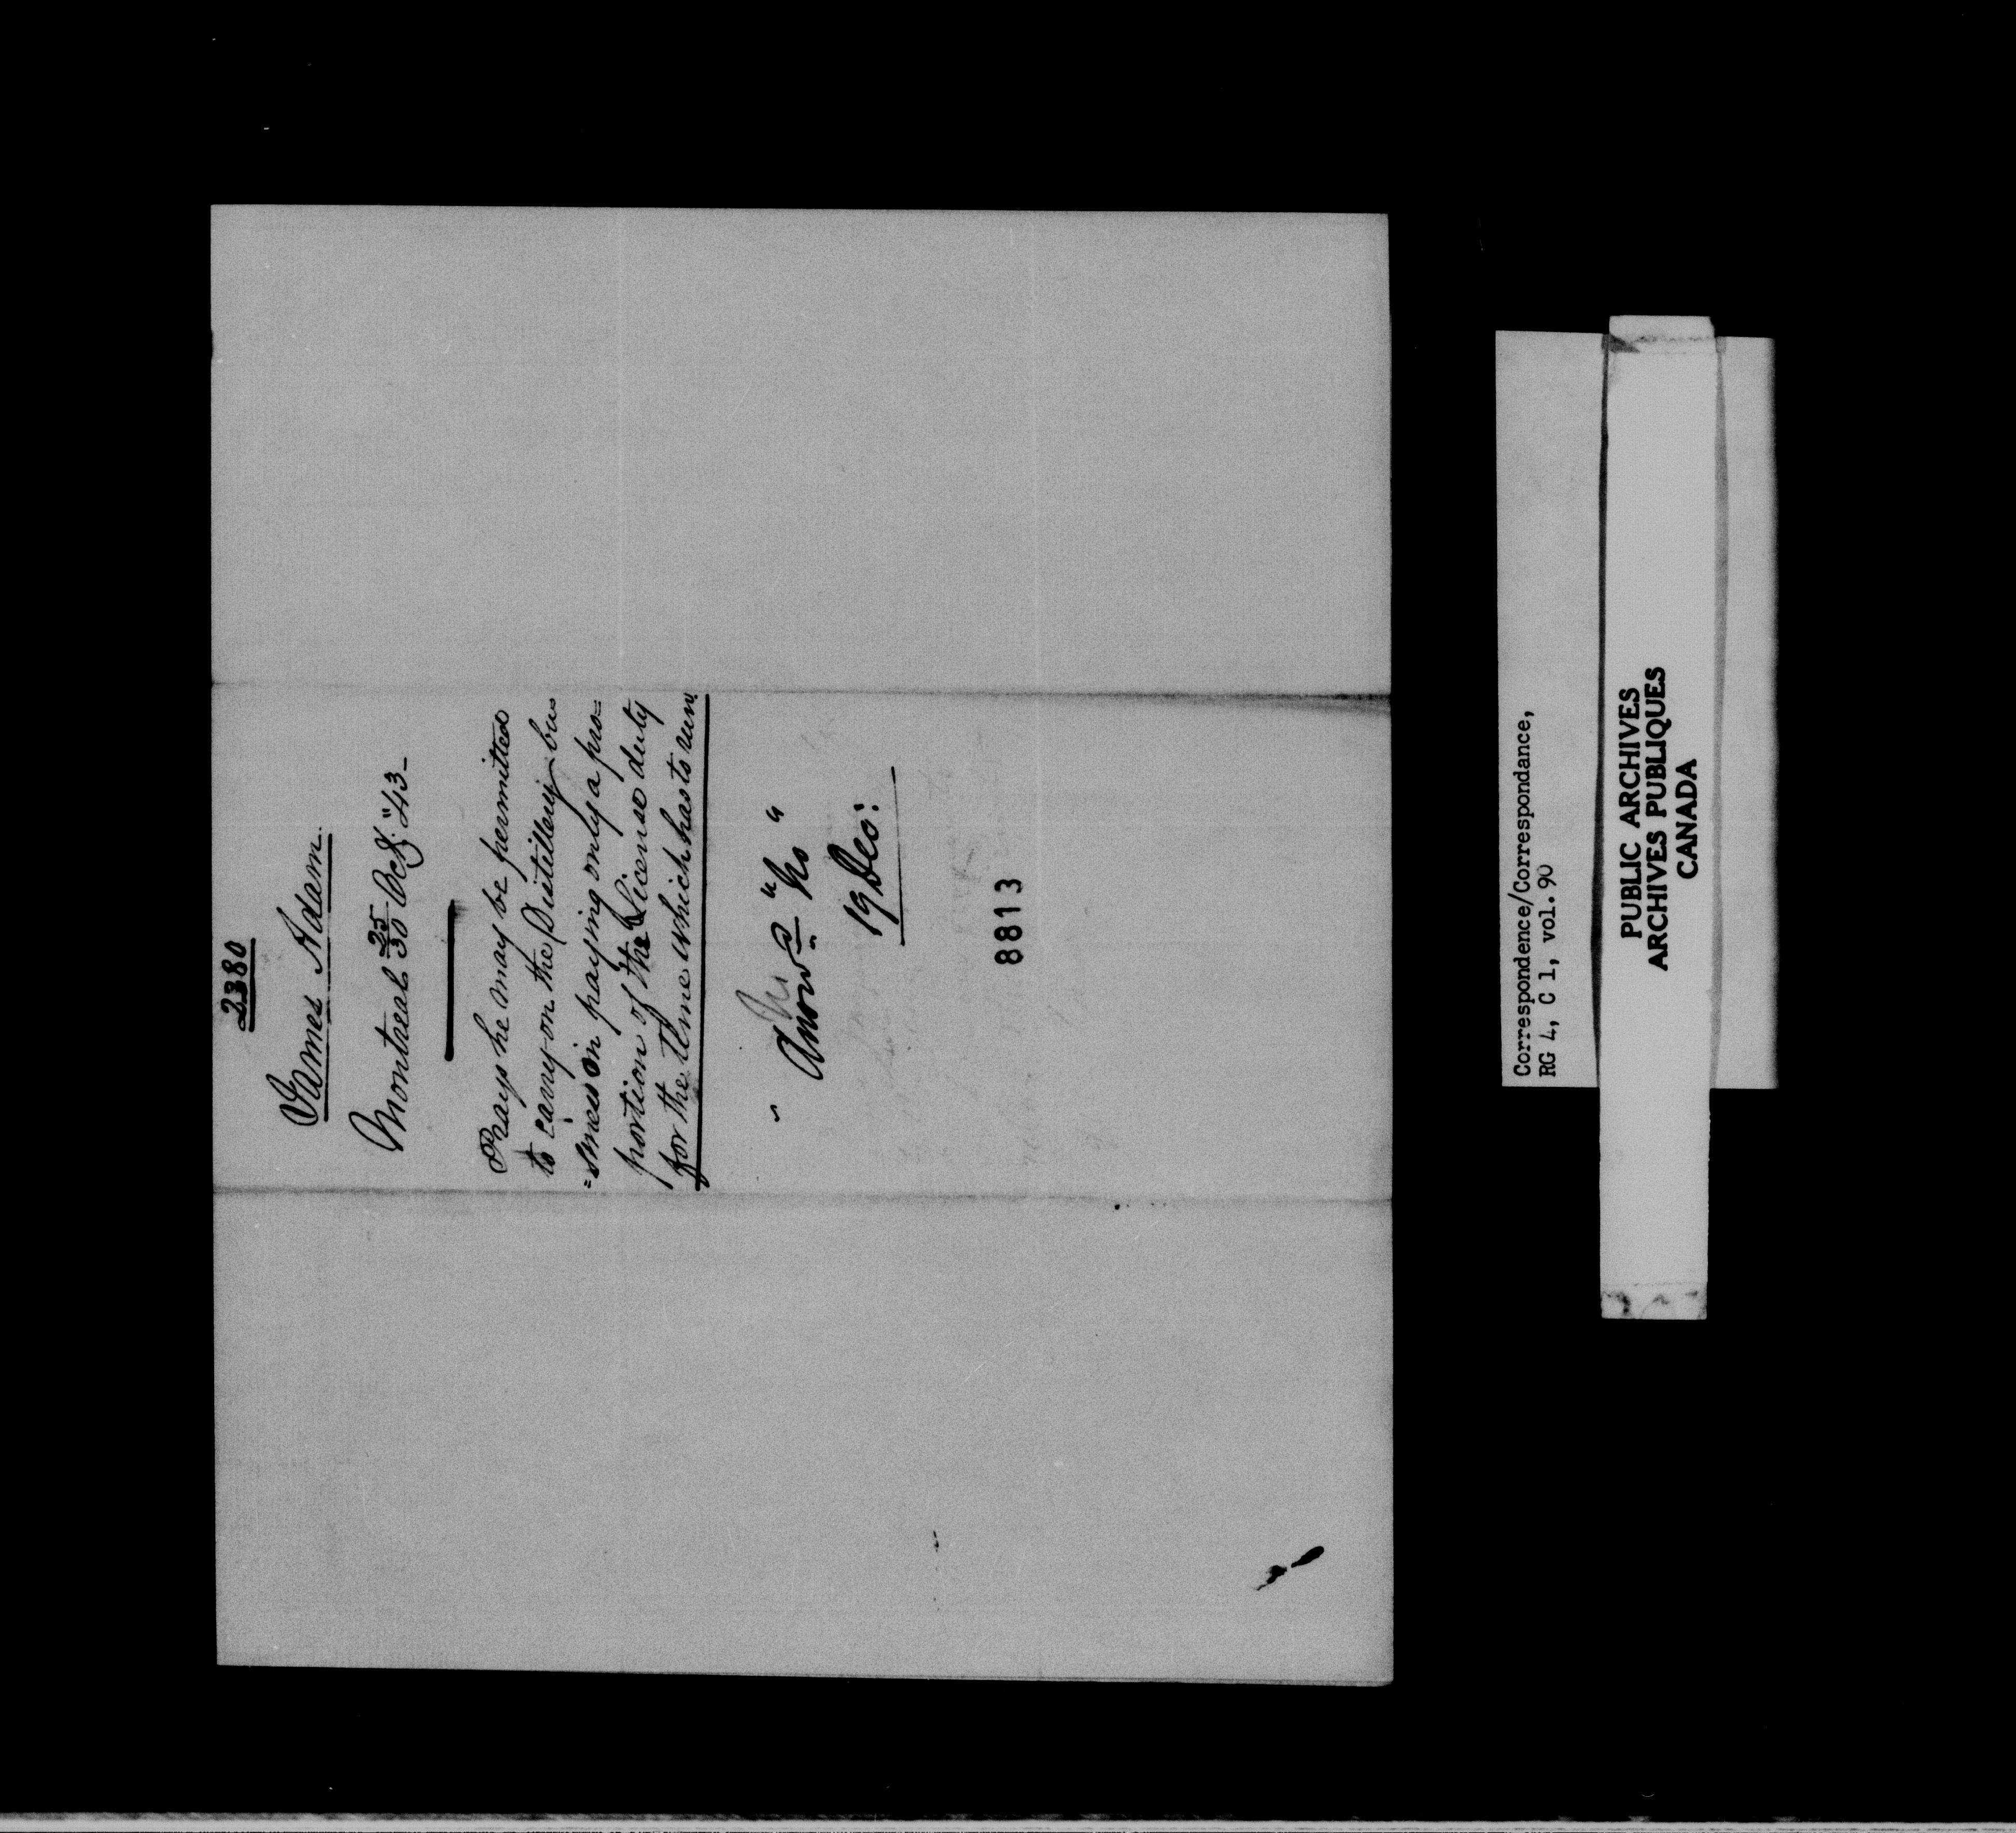 2380
James Adam
Montreal 25/30 Octr. "43-
Prays he may be permitted
to carry on the Distillery bus
=iness on paying only a pro=
portion of the License duty
for the time which has to run
No
Answd "No"
19 Dec:
8813
Correspondence/Correspondance,
RG 4, C 1, vol. 90
PUBLIC ARCHIVES
ARCHIVES PUBLIQUES
CANADA